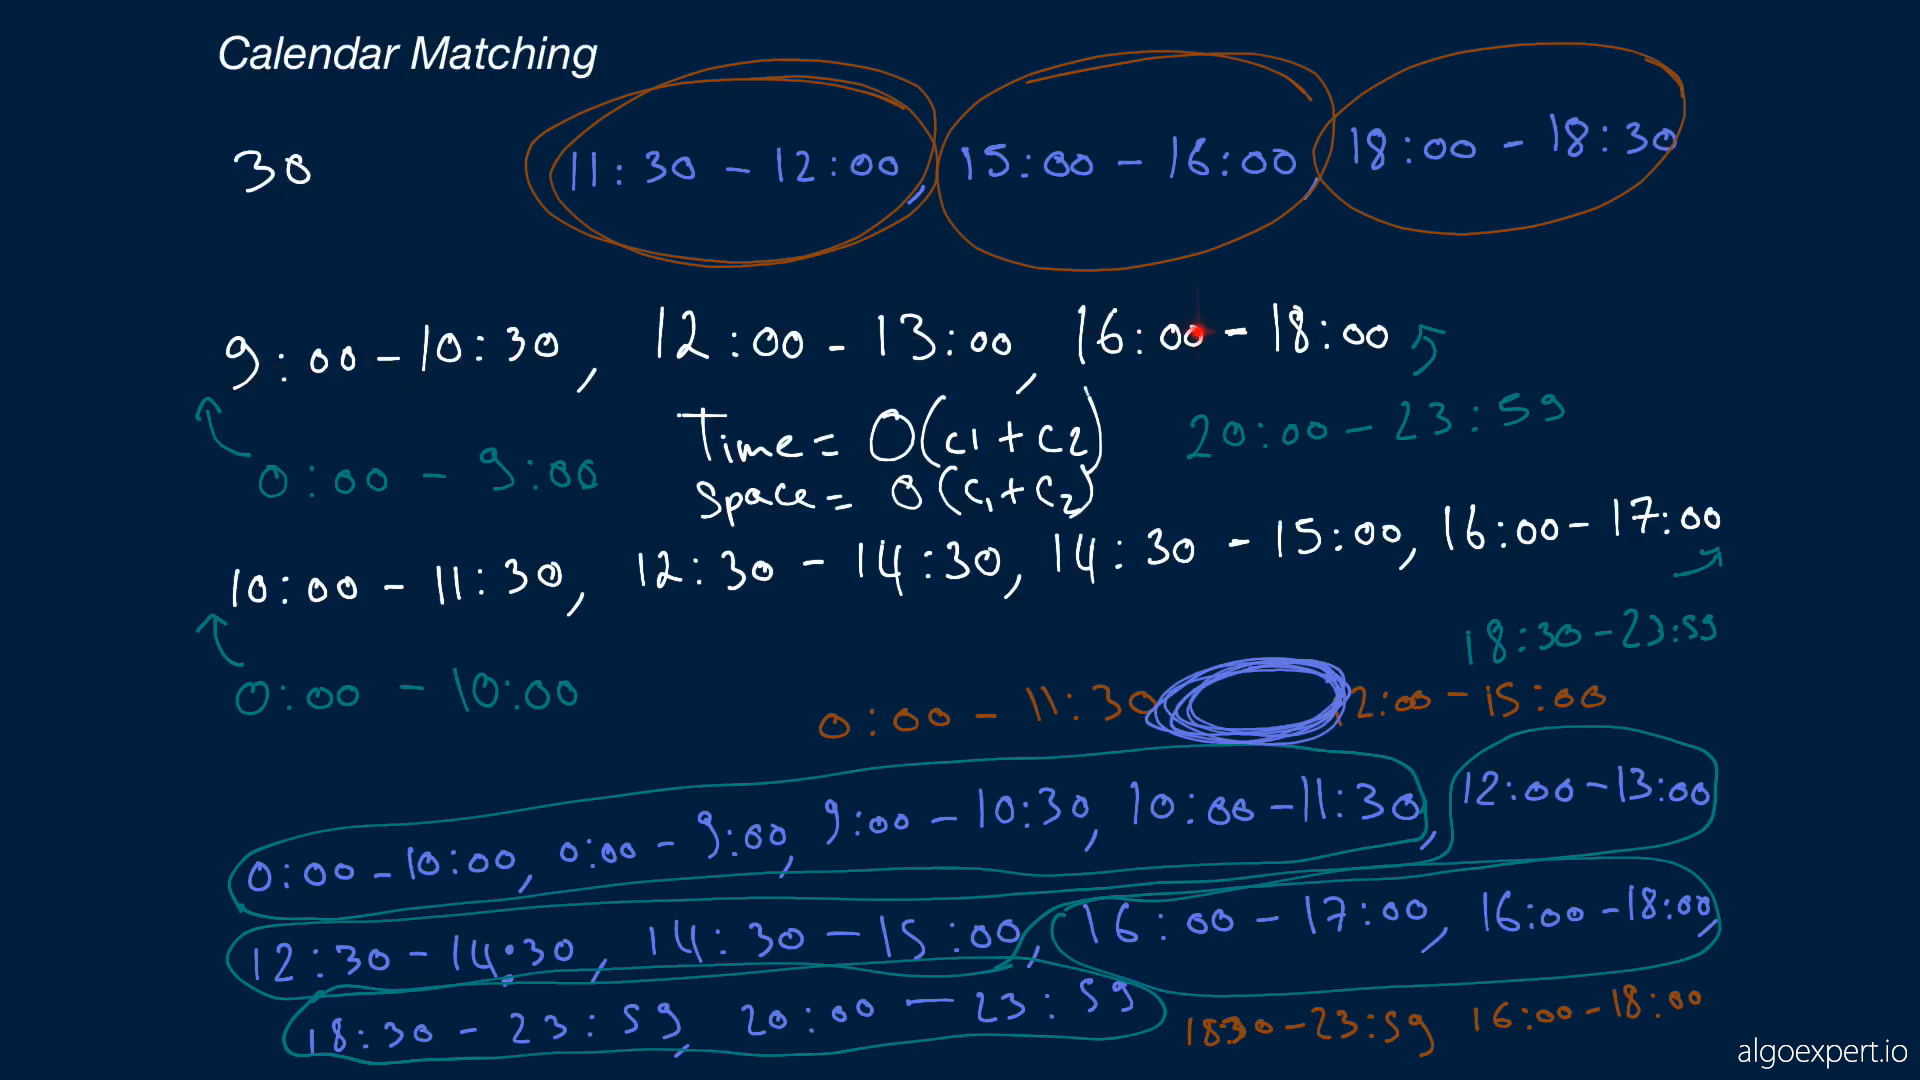 Calendar Matching
30
11:30 - 12:00, 15:00 - 16:00, 18:00 - 18:30
9:00 - 10:30, 12:00 - 13:00, 16:00 - 18:00
0:00 - 9:00
Time = O(c1 + c2)
20:00 - 23:59
Space = O(c1 + c2)
10:00 - 11:30, 12:30 - 14:30, 14:30 - 15:00, 16:00 - 17:00
18:30 - 23:59
0:00 - 10:00
0:00 - 11:30 12:00 - 15:00
0:00 - 10:00, 0:00 - 9:00, 9:00 - 10:30, 10:00 - 11:30, 12:00 - 13:00
12:30 - 14:30, 14:30 - 15:00, 16:00 - 17:00, 16:00 - 18:00,
18:30 - 23:59, 20:00 - 23:59
1830 - 23:59 16:00 - 18:00
algoexpert.io